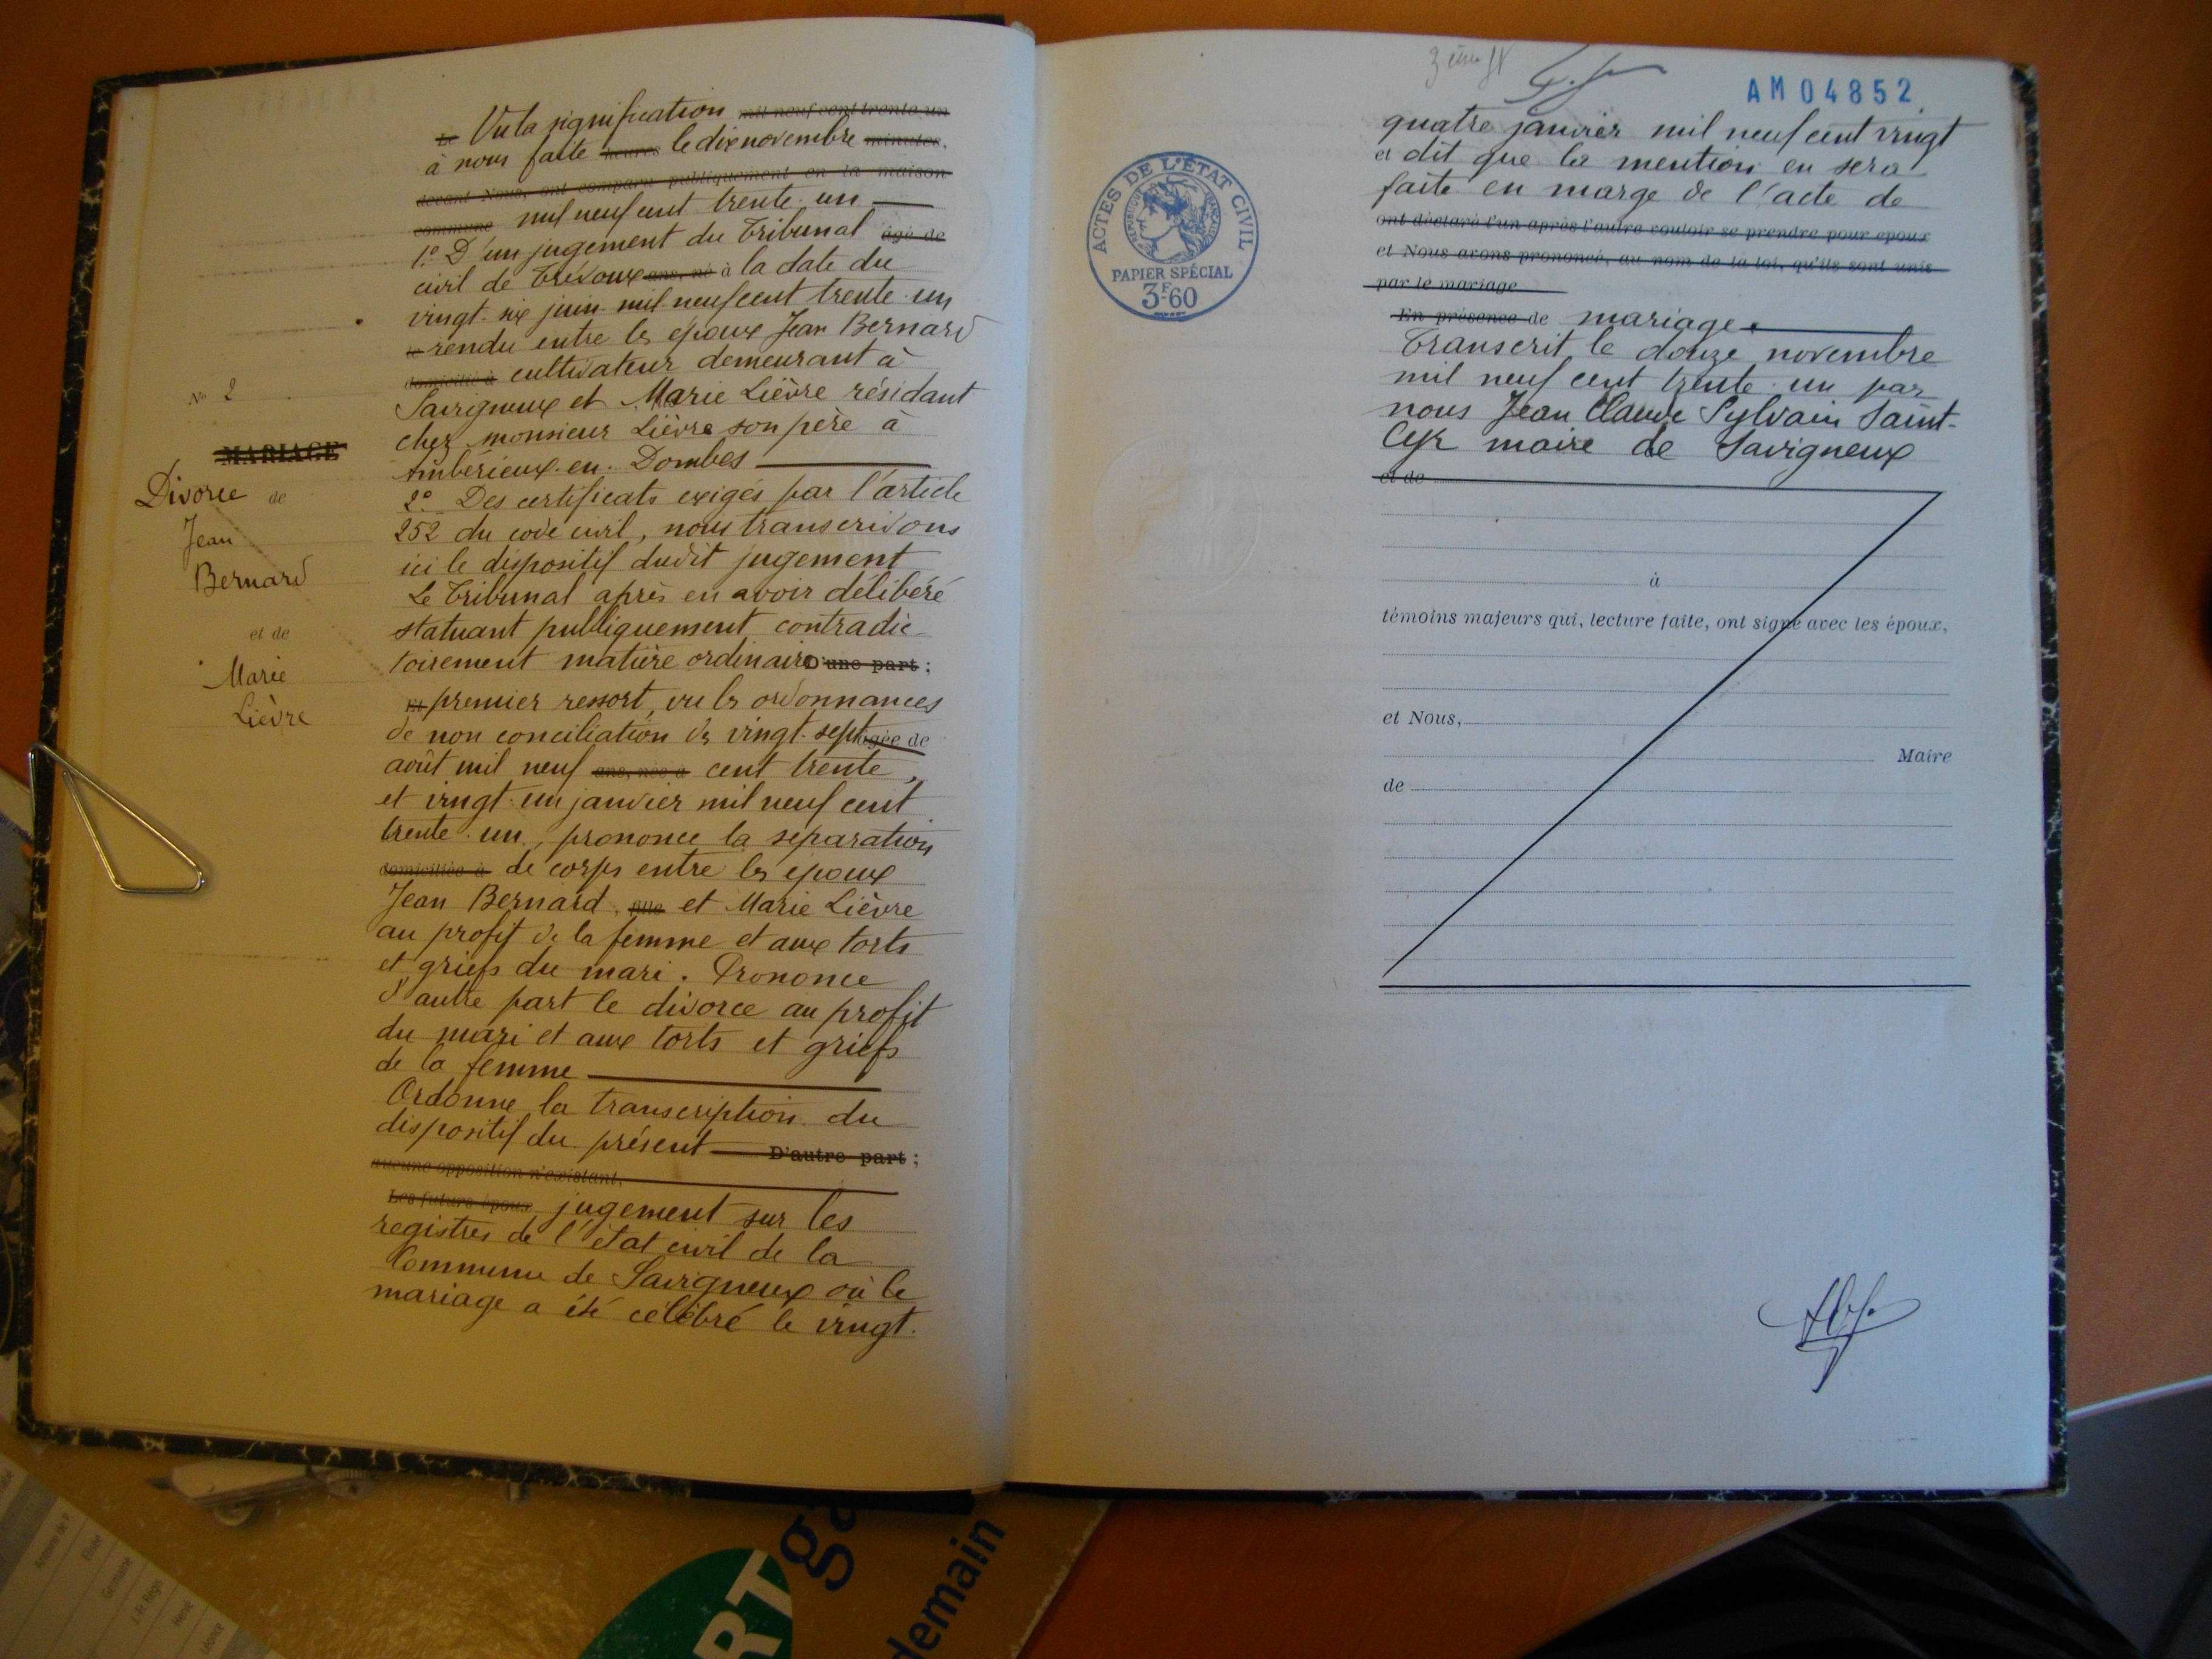 Nº 2
MARIAGE
Divorce de
Jean
Bernard
et de
Marie
Lièvre
Le Vu la signification mil neuf cent trente un
à nous faite heures le dix novembre minutes,
devant Nous, ont comparu publiquement en la maison
commune mil neuf cent trente-un
1º D'un jugement du Tribunal âgé de
civil de Trévoux ans, né à la date du
vingt-six juin mil neuf cent trente-un
le rendu entre les époux Jean Bernard
domicilié à cultivateur demeurant à
Savigneux et Marie Lièvre résidant
chez monsieur Lièvre son père à
Ambérieux-en-Dombes
2º Des certificats exigés par l'article
252 du code civil, nous transcrivons
ici le dispositif dudit jugement
Le Tribunal après en avoir délibéré
statuant publiquement contradic-
toirement matière ordinaire D'une part ;
Et premier ressort, vu les ordonnances
de non conciliation des vingt-sept âgée de
août mil neuf ans, née à cent trente,
et vingt-un janvier mil neuf cent
trente-un, prononce la séparation
domiciliée à de corps entre les époux
Jean Bernard, fille et Marie Lièvre
au profit de la femme et aux torts
et griefs du mari. Prononce
d'autre part le divorce au profit
du mari et aux torts et griefs
de la femme
Ordonne la transcription du
dispositif du présent D'autre part ;
aucune opposition n'existant.
Les futurs époux jugement sur les
registres de l'état civil de la
Commune de Savigneux où le
mariage a été célébré le vingt-
3ème
AM04852
ACTES DE L'ÉTAT CIVIL
RÉPUBLIQUE FRANÇAISE
PAPIER SPÉCIAL
3F60
quatre janvier mil neuf cent vingt
et dit que la mention en sera
faite en marge de l'acte de
ont déclaré l'un après l'autre vouloir se prendre pour époux
et Nous avons prononcé, au nom de la loi, qu'ils sont unis
par le mariage
En présence de mariage.
Transcrit le douze novembre
mil neuf cent trente-un par
nous Jean Claude Sylvain Saint-
Cyr maire de Savigneux
et de
à
témoins majeurs qui, lecture faite, ont signé avec les époux,
et Nous,
Maire
de
RT
ga
demain